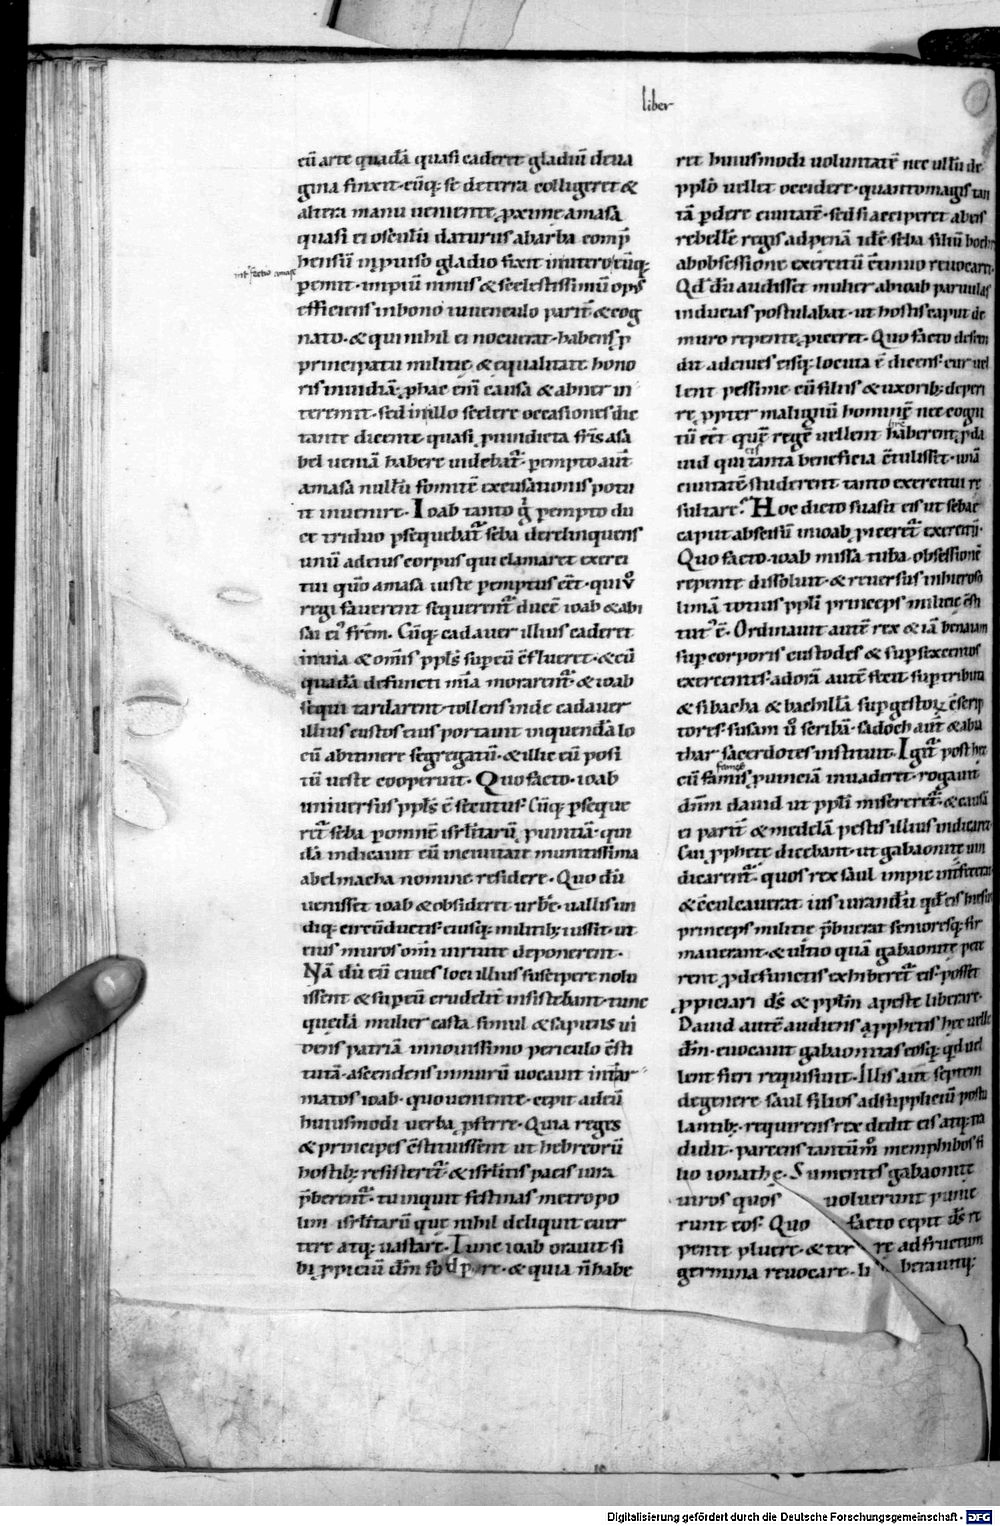 liber
cū arte quadā quasi caderet gladiū deua
gina finxit · cūq; se deterra colligeret &
altera manu uenientē ꝓxime amasā
quasi ei osculū daturus abarba comp̄
hensū īpulso gladio fixit inutero · cūq;
ꝑemit · impiū nimis & scelestissimū op᷒
efficiens inbono iuuenculo parit̄ & cog
nato · & qui nihil ei nocuerat · habens ꝓ
principatu militie & equalitate hono
ris inuidiā · ꝓhac eni᷒ causa & abner in
teremit · sed inillo scelere occasiones dic
tante dicente quasi ꝓ uindicta fr̄is asa
hel ueniā habere uidebat᷒ · ꝑempto aut̄
amasa nullū fomitē excusationis potu
it inuenire · Ioab tanto g̊ ꝑempto du
ce triduo ꝑsequebat᷒ seba derelinquens
unū ad eius corpus qui clamaret exerci
tui quō amasa iuste ꝑemptus eēt · qui ů
regi fauerent sequerent᷒ ducē ioab & abi
sai ei᷒ frēm · Cūq; cadauer illius caderet
inuia & om̄is ppl̄s sup eū cōflueret · & cū
quadā defuncti mīa morarent᷒ · & ioab
sequi tardarent · tollens inde cadauer
illius custos eius portauit inquendā lo
cū abitinere segregatū · & illic eū posi
tū ueste cooperuit · Quo facto · ioab
uniuersus ppl̄s ē secutus · Cūq; ꝑseque
ret᷒ seba ꝑ omnē isrl̄itarū ꝓuintiā · qui
dā indicauit eū inciuitate munitissima
abelmacha nomine residere · Quo dū
uenisset ioab & obsideret urbē · uallis un
diq; circūductis · eiusq; militib; iussit · ut
eius muros om̄i uirtute deponerent ·
Nā dū eū ciues loci illius suscipere nolu
issent & sup eū crudelit̄ insistebant · tunc
quedā mulier casta simul & sapiens ui
dens patriā innouissimo periculo cōsti
tutā · ascendens inmurū uocauit inter ar
matos ioab · quo ueniente · cepit ad eū
huiusmodi uerba ꝓferre · Quia reges
& principes cōstituissent ut hebreorū
hostib; resisterēt᷒ · & isrl̄itis pacis iura
p̄berent᷒ · tu inquit festinas metropo
lim isrl̄itarū que nihil deliquit euer
tere atq; uastare · Tunc ioab orauit si
bi ꝓpiciū dm̄ & quia n̄ habe
ret huiusmodi uoluntatē nec ullū de
pplo uellet occidere · quantomagis tan
tā ꝑdere ciuitatē · sed si acciperet abeis
rebellē regis adpenā idē seba filiū bochri
abobsessione exercitū cōtinuo reuocaret ·
Qd dū audisset mulier abioab paruulas
inducias postulabat · ut hostis caput de
muro repente ꝓiceret · Quo facto descen
dit adciues eisq; locuta ē dicens · cur uel
lent pessime cū filiis & uxorib; deperi
re ꝓpter malignū hominē nec cogni
tū eēt quē regē uellent haberent ꝓ da
uid qui eis tanta beneficia cōtulisset · unā
ciuitatē studerent tanto exercitui re
sultare · Hoc dicto suasit eis ut sebae
caput abscisū inioab ꝓicerēt᷒ exercitū ·
Quo facto · ioab missa tuba · obsessionē
repente dissoluit · & reuersus inhieroso
limā totius ppl̄i princeps militie cōsti
tut᷒ ē · Ordinauit autē rex & iā banaiam
sup corporis custodes & sup sexcentos
exercentes · adorā autē fecit sup tributa
& sibacha & bachillā sup gestorꝝ cōscrip
tores · susam ů scribā · sadoch aut̄ & abia
thar sacerdotes instituit · Igit᷒ post hec
cū famis famēs ꝓuinciā inuaderet · rogauit
dn̄m dauid ut ppl̄i misereret᷒ · & causā
ei parit̄ & medelā pestis illius indicaret ·
Cui ꝓphete dicebant · ut gabaonite uin
dicarent᷒ · quos rex saul impie interfecerat
& cōculcauerat ius iurandū qd̄ eis hiesus
princeps militie p̄buerat senioresq; fir
mauerant · & ultio quā gabaonite pete
rent ꝓ defunctis exhiberet᷒ eis · posset
ꝓpiciari ds̄ & ppl̄m apeste liberare ·
Dauid autē audiens aꝓphetis hec uelle
dm̄ · euocauit gabaonitas eosq; qd uel
lent fieri requisiuit · Illis aut̄ septem
degenere saul filios adsuppliciū postu
lantib; · requirens rex dedit eis atq; tra
didit · parcens tantūm̊ memphibos fi
lio ionathe · Sumentes gabaonite
uiros quos uoluerunt punie
runt eos · Quo facto cepit ds̄ re
pente pluere · & terrē ad fructum
germina reuocare ·